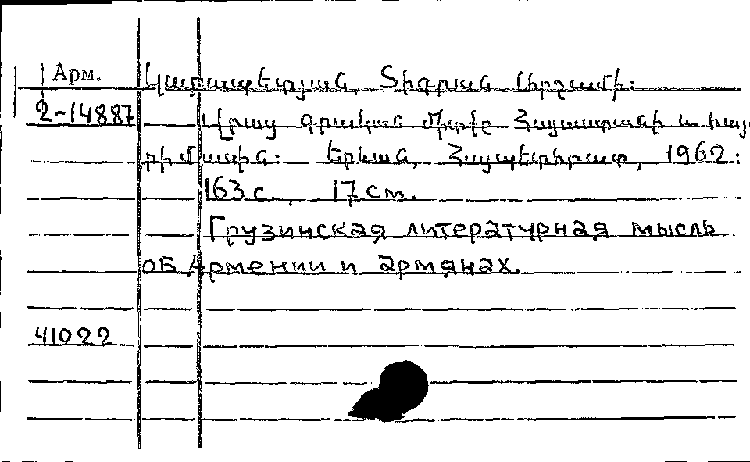 Арм. Կարապետյան, Տիգրան Արշամի:
2-14887 Վրաց գրական միտքը Հայաստանի և հայե
րի մասին: Երևան, Հայպետհրատ, 1962:
163 с. 17 см.
Грузинская литературная мысль
об Армении и армянах.
41022